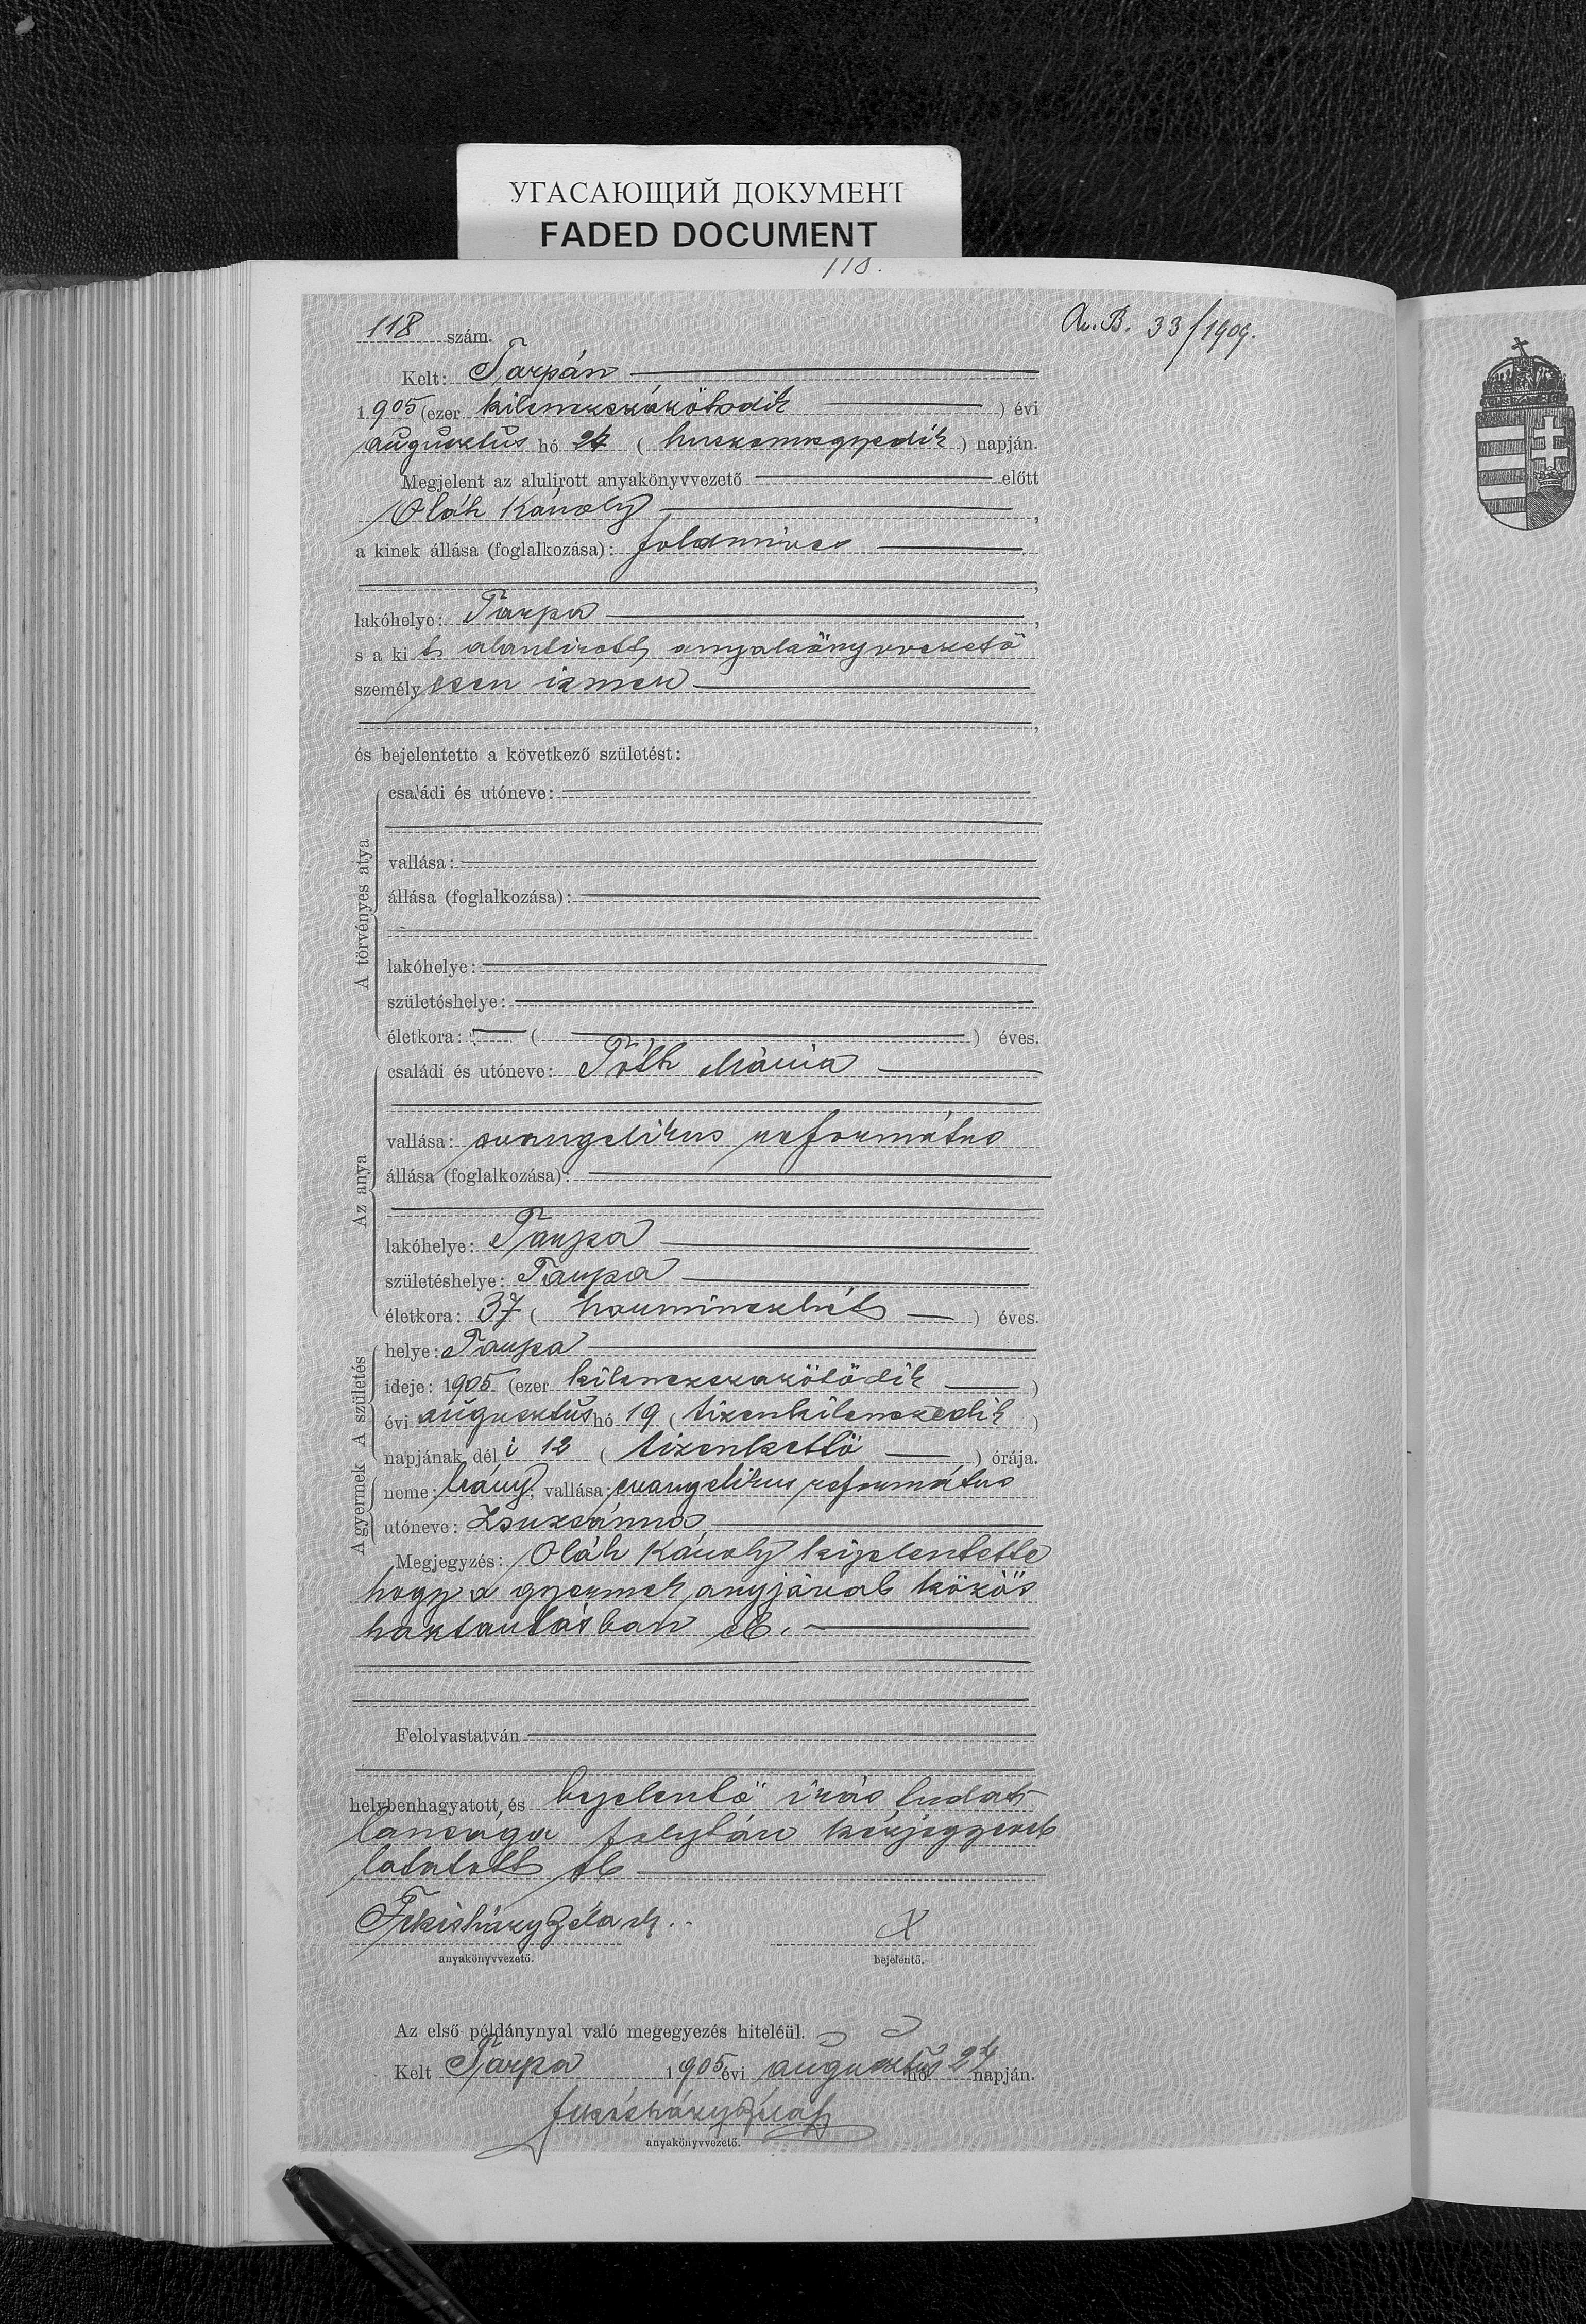 УГАСАЮЩИЙ ДОКУМЕНТ
FADED DOCUMENT
118.
118 szám.
A. B. 33/1909.
Kelt: Tarpán
1905 (ezer kilenczszázötödik) évi
augusztus hó 24 (huszonnegyedik) napján.
Megjelent az alulirott anyakönyvvezető előtt
Oláh Károly,
a kinek állása (foglalkozása): földmíves
lakóhelye: Tarpa,
s a kit alantirott anyakönyvvezető
személyesen ismer
és bejelentette a következő születést:
A törvényes atya
családi és utóneve:
vallása:
állása (foglalkozása):
lakóhelye:
születéshelye:
életkora: ( ) éves.
Az anya
családi és utóneve: Tóth Mária
vallása: evangelikus református
állása (foglalkozása):
lakóhelye: Tarpa
születéshelye: Tarpa
életkora: 37 (harminczhét) éves.
A gyermek A születés
helye: Tarpa
ideje: 1905 (ezer kilenczszázötödik)
évi augusztus hó 19 (tizenkilenczedik)
napjának déli 12 (tizenkettő) órája.
neme: leány; vallása: evangelikus református
utóneve: Zsuzsánna
Megjegyzés: Oláh Károly kijelentette
hogy a gyermek anyjával közös
háztartásban él.
Felolvastatván
helybenhagyatott, és bejelentő írás tudat
lansága folytán kézjegyével
láttatott el
anyakönyvvezető.
X
bejelentő.
Az első példánynyal való megegyezés hiteléül.
Kelt Tarpa 1905 évi augusztus hó 24 napján.
anyakönyvvezető.